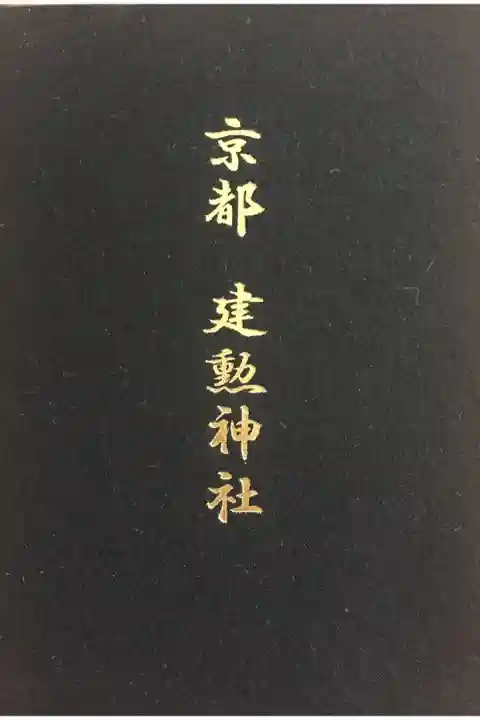 京都　建勲神社